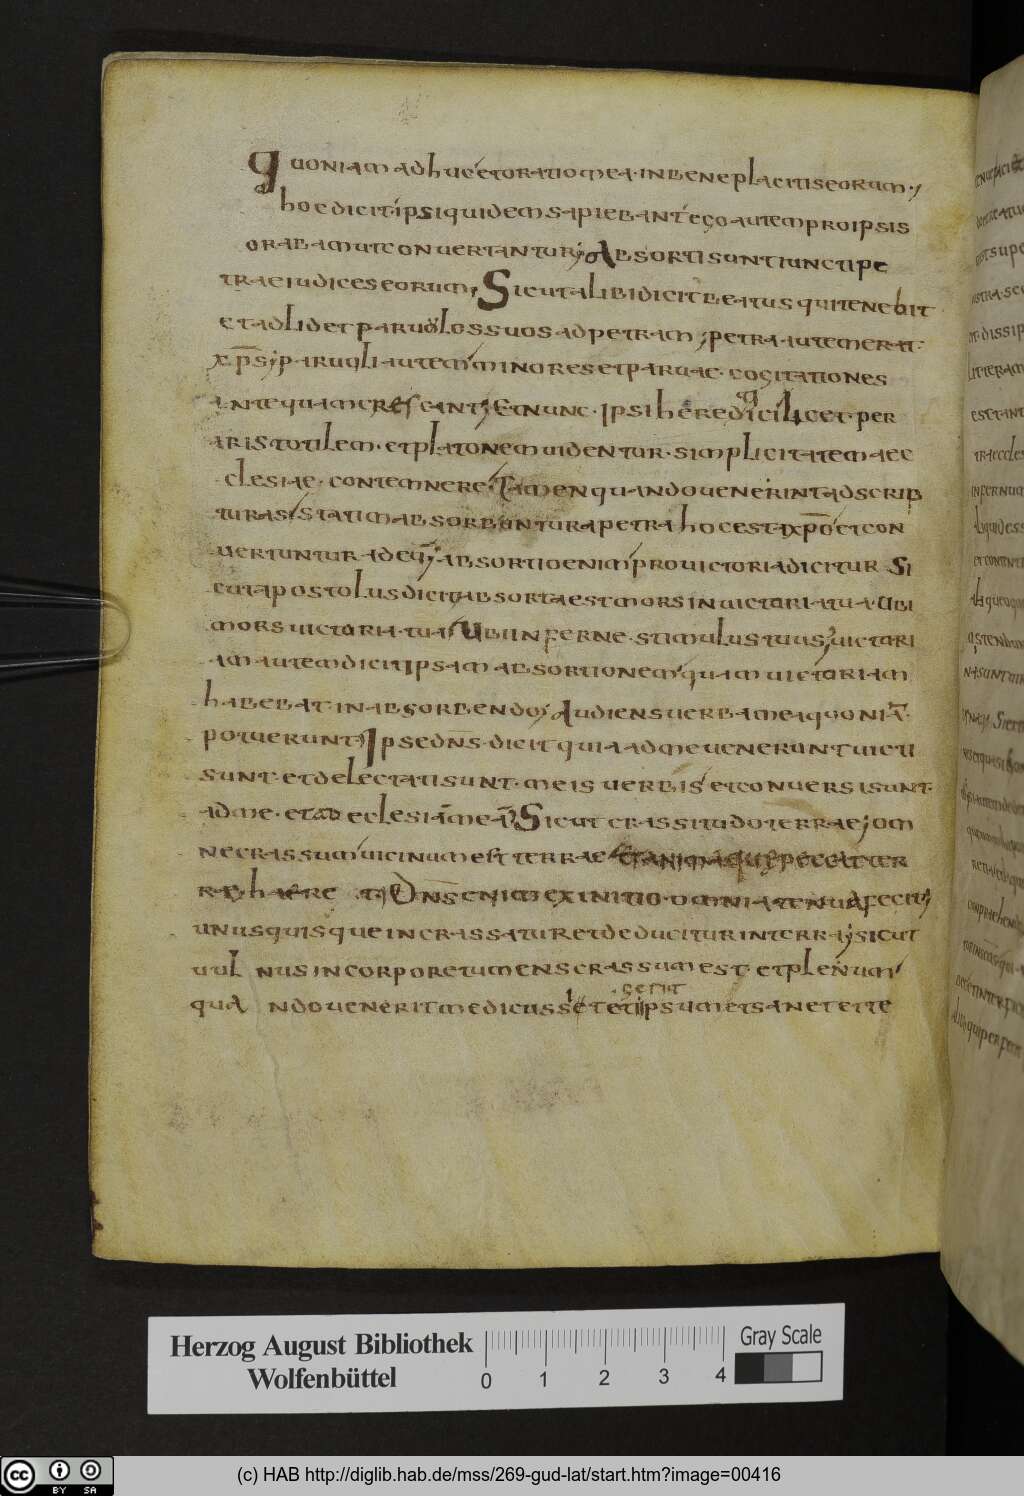 quoniam adhuc et oratio mea · in beneplacitis eorum ·,
hoc dicit ipsi quidem sapiebant ego autem pro ipsis
orabam ut conuertantur; Absorti sunt iuncti pe
trae iudices eorum, Sicut alibi dicit beatus qui tenebit
et adlidet paruolos suos ad petram; petra autem erat ·
xp̅s; paruoli autem minores et paruae · cogitationes
antequam crescant; Et nunc · Ipsi heredici licet · per
aristotilem · et platonem uidentur · simplicitatem aec
clesiae · contemnere · Tamen quando uenerint ad scrip
turas statim absorbuntur a petra hoc est xp̅o et con
uertuntur ad eū; absortio enim pro uictoria dicitur Si
cut apostolus dicit absorta est mors in uictoria tua · Ubi
mors uictoria · tua Ubi inferne · stimulus tuus; uictori
am autem dicit ipsam absortionem quam uictoriam
habebat · in absorbendo; Audiens uerba mea quoniā ·
potuerunt; Ipse dn̅s · dicit quia ad me uenerunt uicti
sunt · et delectati sunt · meis uerbis et conuersi sunt ·
ad me · et ad eclesiā meā; Sicut crassitudo terrae; om
ne crassum uicinum est terrae et anima que peccat ter
rae haere t; Dn̅s enim ex initio · omnia tenua fecit;
unusquisque incrassatur et deducitur in terra; sicut
uul nus in corpore tumens crassum est · et plenum
gerit
qua ndo uenerit medicus secet et ipsum et sanet et ite
Herzog August Bibliothek
Wolfenbüttel
0 1 2 3 4
Gray Scale
cc BY SA
(c) HAB http://diglib.hab.de/mss/269-gud-lat/start.htm?image=00416